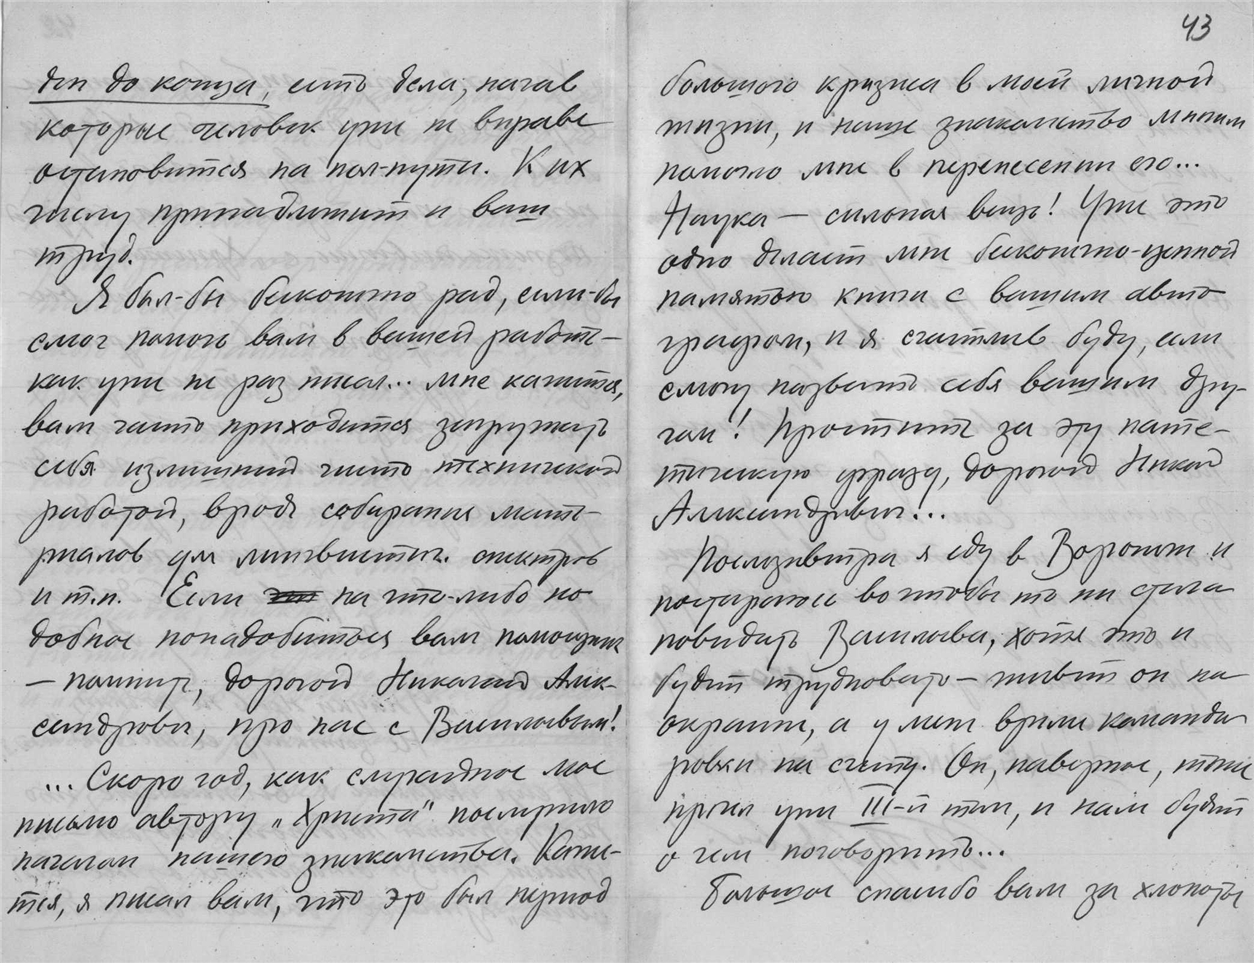 ден до конца, есть дела, начав
которые человек уже не вправе
остановиться на пол-пути. К их
числу принадлежит и ваш
труд.
Я был-бы бесконечно рад, если-бы
смог помочь вам в вашей работе —
как уже не раз писал... Мне кажется,
вам часто приходится загружать
себя излишней чисто технической
работой, вроде собирания мате-
риалов для лингвистич. спектров
и т.п. Если на что-либо по-
добное понадобиться вам помощник
— помните, дорогой Николай Алек-
сандрович, про нас с Васильевым!
... Скоро год, как случайное мое
письмо автору „Христа" послужило
началом нашего знакомства. Каже-
тся, я писал вам, что это был период
43
большого кризиса в моей личной
жизни, и наше знакомство многим
помогло мне в перенесении его...
Наука — сильная вещь! Уже это
одно делает мне бесконечно-ценной
памятью книги с вашим авто-
графом, и я счастлив буду, если
смогу назвать себя вашим дру-
гом! Простите за эту пате-
тическую фразу, дорогой Никол.
Александрович...
Послезавтра я еду в Воронеж и
постараюсь во чтобы то ни стало
повидать Васильева, хотя это и
будет трудновато — живет он на
окраине, а у меня время команди-
ровки на счету. Он, наверное, тоже
прочел уже III-й том, и нам будет
о чем поговорить...
Большое спасибо вам за хлопоты